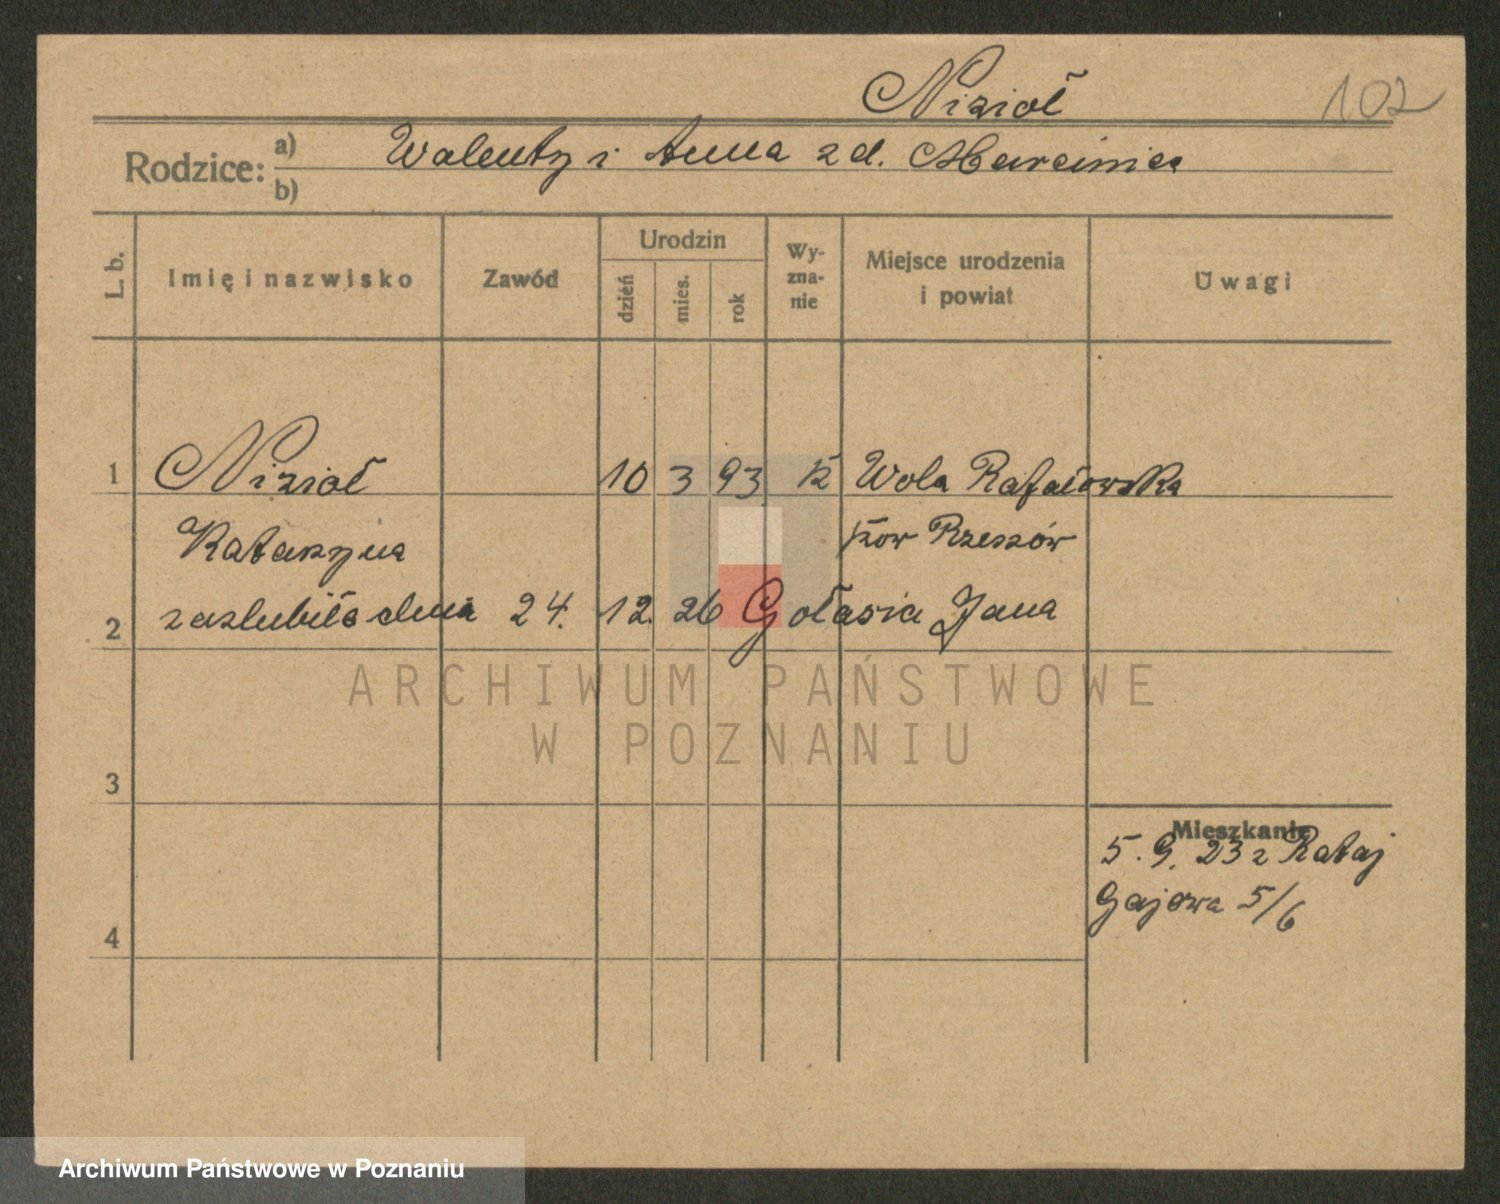 Nizioł 102
Rodzice: a) Walenty i Anna z d. Marciniec
b)
L. b. Imię i nazwisko Zawód Urodzin dzień mies. rok Wy-zna-nie Miejsce urodzenia i powiat Uwagi
1 Nizioł 10 3 93 k Wola Rafałowska
Katarzyna pow Rzeszów
2 zaslubiła dnia 24. 12. 26 Gołasia Jana
ARCHIWUM PAŃSTWOWE
W POZNANIU
3
Mieszkanie
5. 9. 23 z Rataj
Gajowa 5/6
4
Archiwum Państwowe w Poznaniu